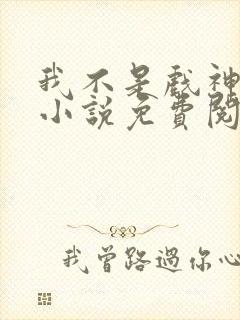 我不是戲神
小說免費閱
我曾路過你心